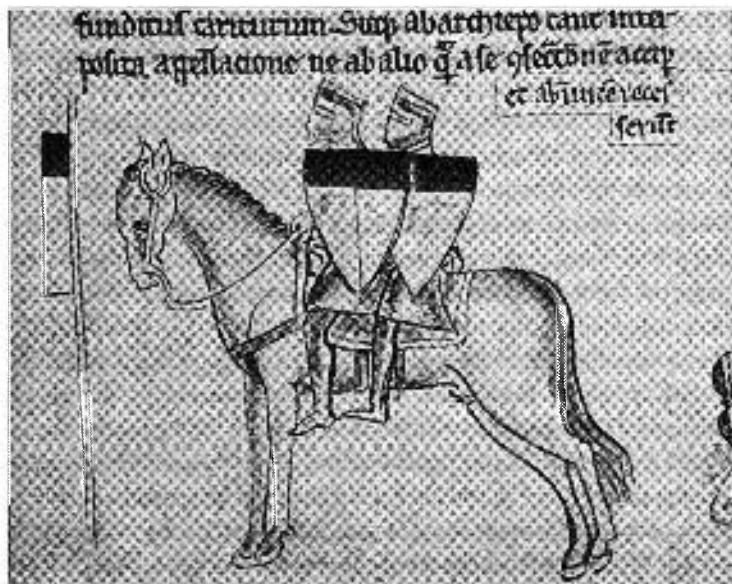 funditus cariturum. ab archiep̄o cant̄ inter
posita appellacione ne ab alio q̄ a se ꝯsecc̄onē accip
et abīuicē recess
erūt